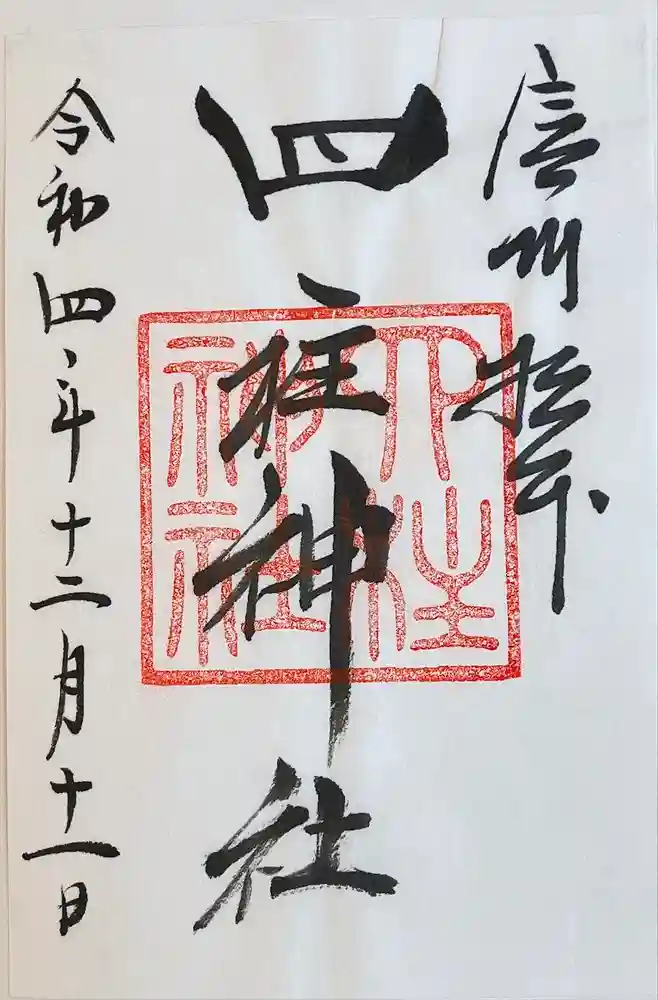 信州拝
四柱神社
令和四年十二月十一日
四柱
神社